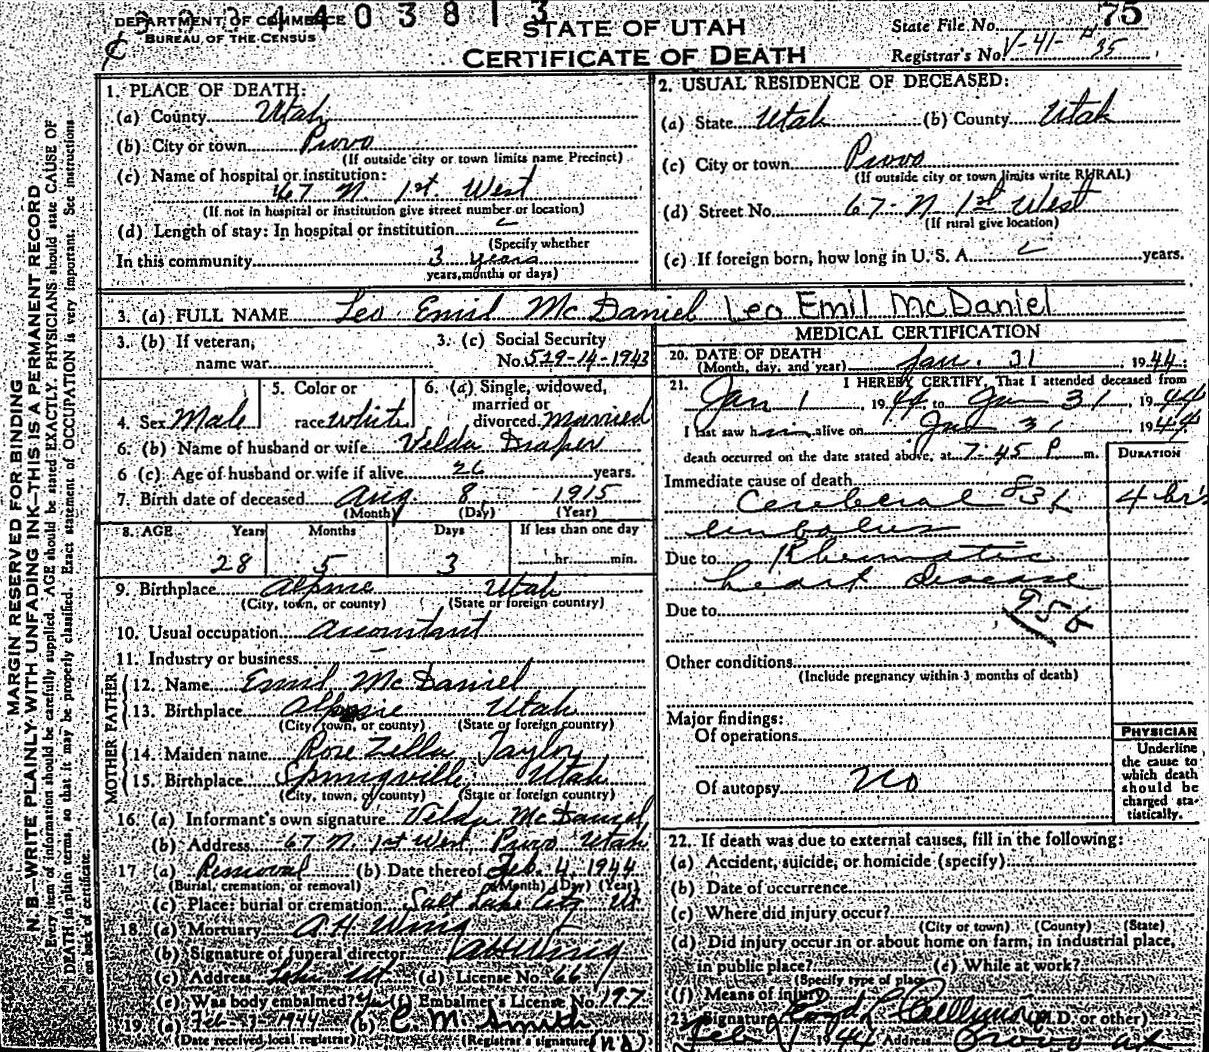 DEPARTMENT OF COMMERCE
BUREAU OF THE CENSUS
STATE OF UTAH
CERTIFICATE OF DEATH
State File No. 75
Registrar's No. V-41- 35
MARGIN RESERVED FOR BINDING
N. B.—WRITE PLAINLY WITH UNFADING INK—THIS IS A PERMANENT RECORD
Every item of information should be carefully supplied. AGE should be stated EXACTLY. PHYSICIANS should state CAUSE OF
DEATH in plain terms, so that it may be properly classified. Exact statement of OCCUPATION is very important. See instructions
on back of certificate.
1. PLACE OF DEATH:
(a) County Utah
(b) City or town Provo
(If outside city or town limits name Precinct)
(c) Name of hospital or institution:
67 N. 1st West
(If not in hospital or institution give street number or location)
(d) Length of stay: In hospital or institution
(Specify whether
In this community 3 years
years, months or days)
2. USUAL RESIDENCE OF DECEASED:
(a) State Utah (b) County Utah
(c) City or town Provo
(If outside city or town limits write RURAL)
(d) Street No. 67-N 1st West
(If rural give location)
(e) If foreign born, how long in U. S. A. years.
3. (a) FULL NAME Leo Emil McDaniel Leo Emil McDaniel
3. (b) If veteran,
name war
3. (c) Social Security
No. 529-14-1943
4. Sex Male
5. Color or
race white
6. (a) Single, widowed,
married or
divorced married
6. (b) Name of husband or wife Velda Draper
6 (c) Age of husband or wife if alive 26 years.
7. Birth date of deceased Aug 8 1915
(Month) (Day) (Year)
8. AGE Years Months Days If less than one day
28 5 3 hr. min.
9. Birthplace Alpine Utah
(City, town, or county) (State or foreign country)
10. Usual occupation Accontant
11. Industry or business
FATHER
12. Name Emil McDaniel
13. Birthplace Alpine Utah
(City, town, or county) (State or foreign country)
MOTHER
14. Maiden name Rose Zella Taylor
15. Birthplace Springville Utah
(City, town, or county) (State or foreign country)
16. (a) Informant's own signature Velda McDaniel
(b) Address 67 N. 1st West Provo Utah
17 (a) Removal (b) Date thereof Feb. 4, 1944
(Burial, cremation, or removal) (Month) (Day) (Year)
(c) Place: burial or cremation Salt Lake City Ut
18. (a) Mortuary A H Wing
(b) Signature of funeral director A H Wing
(c) Address Lehi Ut (d) License No. 66
(e) Was body embalmed? (f) Embalmer's License No. 197
19. (a) Feb 1944 (b) C. M. Smith
(Date received local registrar) (Registrar's signature)
MEDICAL CERTIFICATION
20. DATE OF DEATH Jan. 31 1944
(Month, day, and year)
21. I HEREBY CERTIFY, That I attended deceased from
Jan 1, 1944 to Jan 31, 1944
I last saw him alive on Jan 31 1944
death occurred on the date stated above, at 7:45 P m.
DURATION
Immediate cause of death
Cerebral 83b 4 hr's
embolus
Due to Rheumatic
heart disease
Due to 95b
Other conditions
(Include pregnancy within 3 months of death)
Major findings:
Of operations
Of autopsy No
PHYSICIAN
Underline
the cause to
which death
should be
charged sta-
tistically.
22. If death was due to external causes, fill in the following:
(a) Accident, suicide, or homicide (specify)
(b) Date of occurrence
(c) Where did injury occur?
(City or town) (County) (State)
(d) Did injury occur in or about home on farm, in industrial place,
in public place? (e) While at work?
(Specify type of place)
(f) Means of injury
23. Signature (M.D. or other)
Feb 1 1944 Address Provo Ut